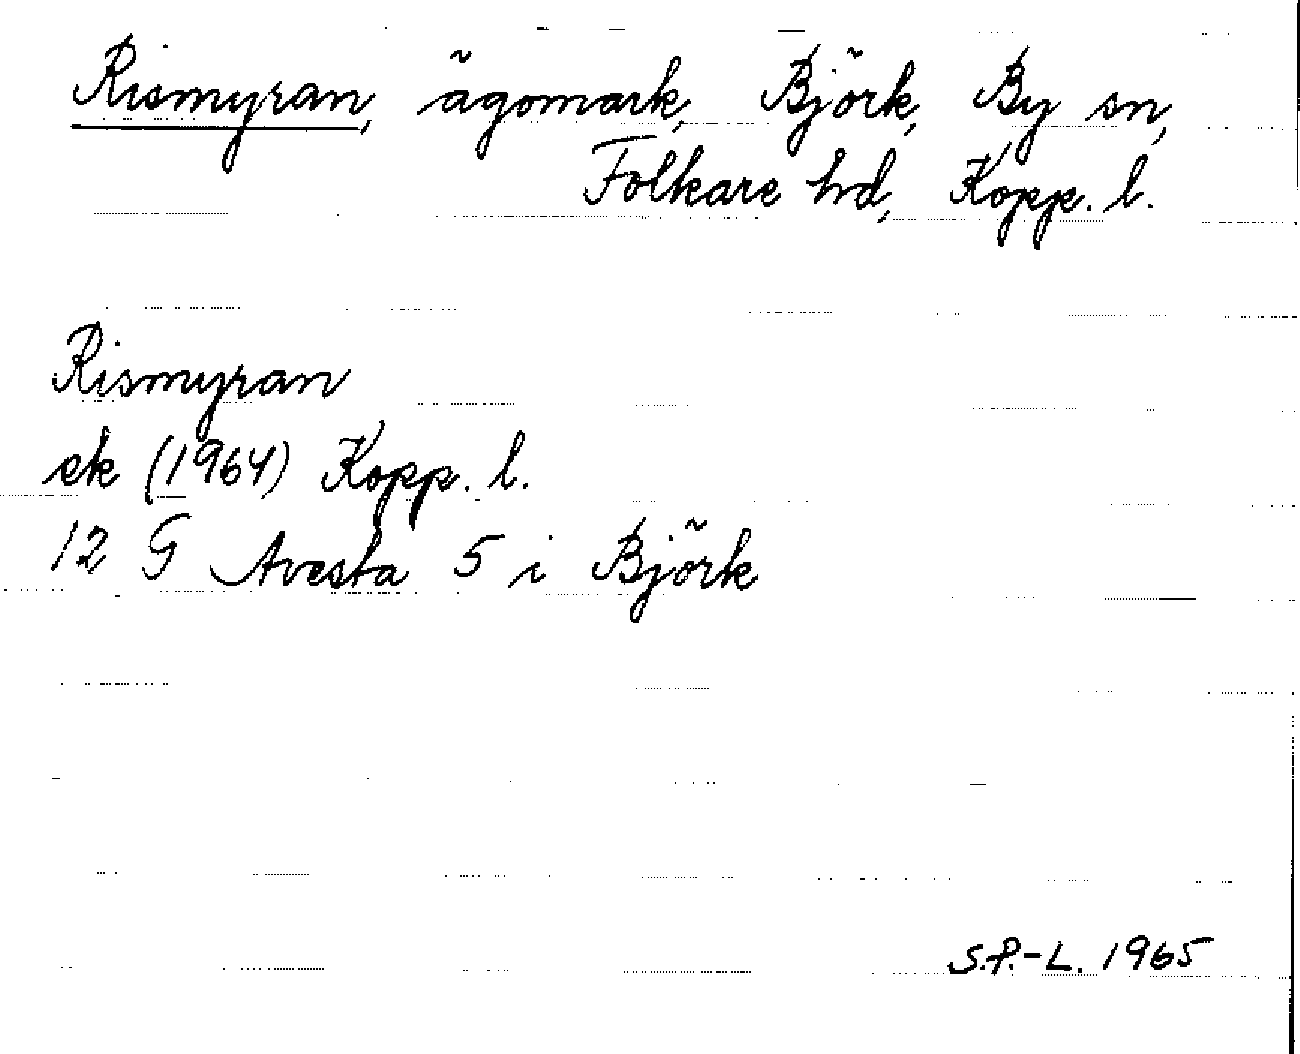 Rismyran, ägomark, Björk, By sn,
Folkare hd, Kopp. l.
Rismyran
ek (1964) Kopp. l.
12 G Avesta 5 i Björk
S.P.-L. 1965